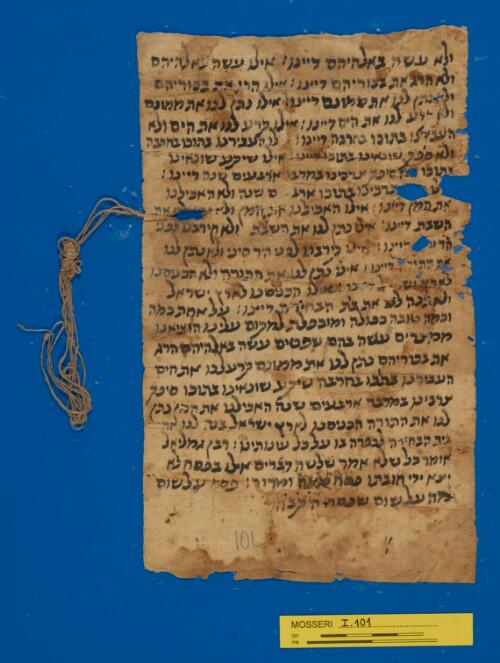 ולא עשה באלהיהם דיינו: אילו עשה באלהיהם
ולא הרג את בכוריהם דיינו: אילו הרג את בכוריהם
ולא נתן לנו את ממונם דיינו: אילו נתן לנו את ממונם
ולא קרע לנו את הים דיינו: אילו קרע לנו את הים ולא
העבירנו בתוכו בחרבה דיינו: לו העבירנו בתוכו בחרבה
ולא שיקע שונאינו בתוכו דיינו: אילו שיקע שונאינו
בתוכו סיפק צרכינו במדבר ארבעים שנה דיינו:
צרכינו בתוכו ארב ם שנה ולא האכילנו
את המן דיינו: אילו האכילנו את המן ולא את
השבת דיינו: אילו נתן לנו את השבת ולא קירבנו לפני
הר דיינו: אילו קירבנו לפני הר סיני ולא נתן לנו
את התורה דיינו: אילו נתן לנו את התורה ולא הכניסנו
לארץ דיינו: אילו הכניסנו לארץ ישראל
ולא בנה לנו את בית הבחירה דיינו: על אחת כמה
וכמה טובה כפולה ומוכפלת למקום עלינו הוציאנו
ממצרים עשה בהם שפטים עשה באלהיהם הרג
את בכוריהם נתן לנו את ממונם קרע לנו את הים
העבירנו בתוכו בחרבה שיקע שונאינו בתוכו סיפק
צרכינו במדבר ארבעים שנה האכילנו את המן נתן
לנו את התורה הכניסנו לארץ ישראל בנה לנו את
בית הבחירה לכפרה בו על כל עונותינו: רבן גמליאל
אומר כל שלא אמר שלשה דברים אילו בפסח לא
יצא ידי חובתו פסח מצה ומרור: פסח על שום
מה על שום שפסח הקבה
101
MOSSERI I.101
cm
ins